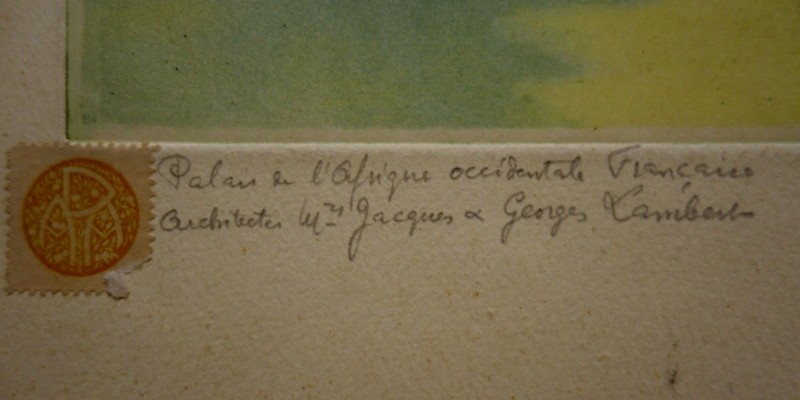 Palais de l'Afrique occidentale Française
Architectes Mrs Jacques & Georges Lambert